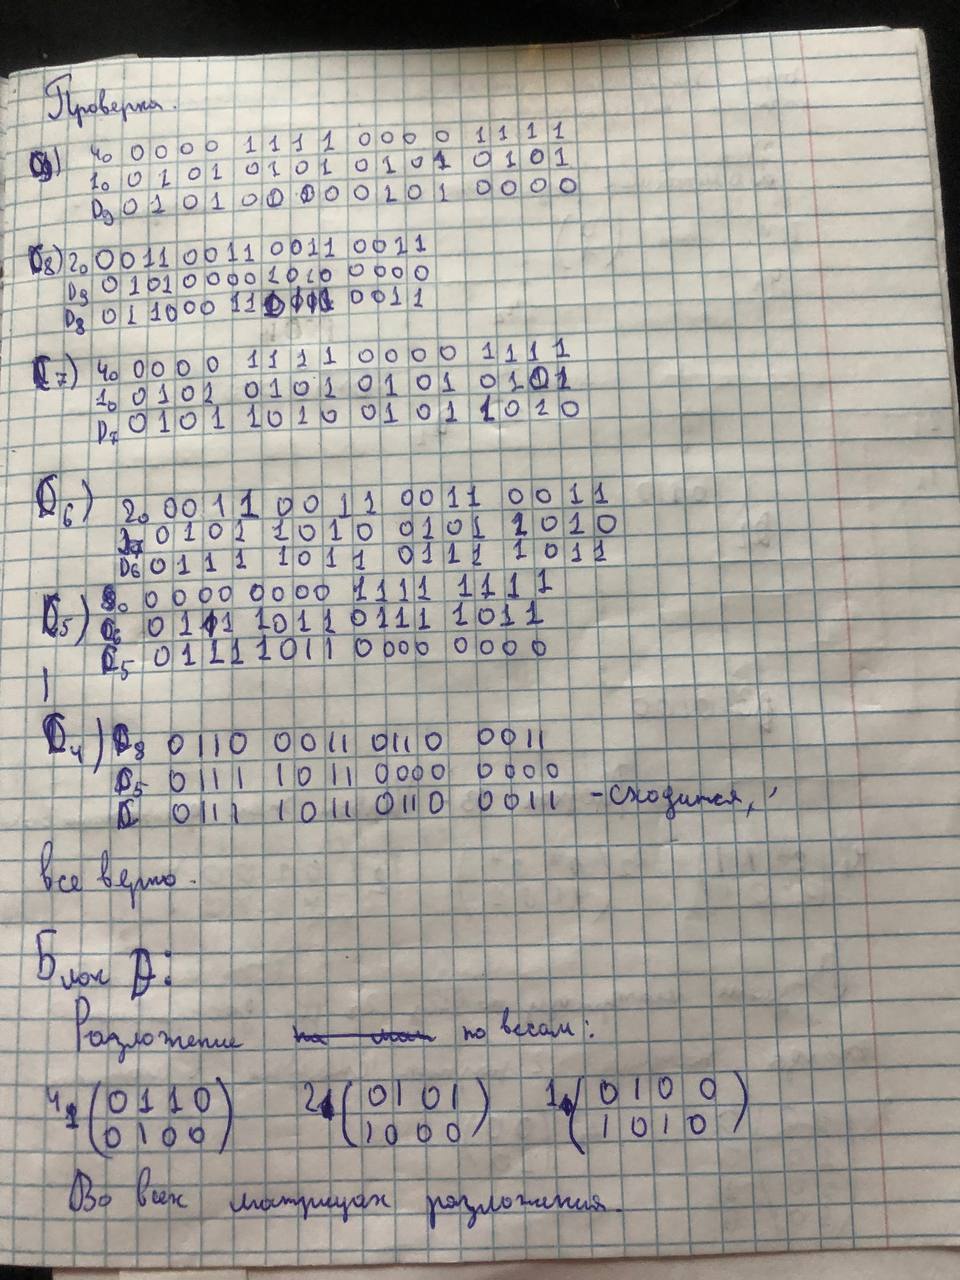 Проверка.
9) 4₀ 0 0 0 0 1 1 1 1 0 0 0 0 1 1 1 1
1₀ 0 1 0 1 0 1 0 1 0 1 0 1 0 1 0 1
D₉ 0 1 0 1 0 0 0 0 0 1 0 1 0 0 0 0
8) 2₀ 0 0 1 1 0 0 1 1 0 0 1 1 0 0 1 1
D₉ 0 1 0 1 0 0 0 0 1 0 1 0 0 0 0 0
D₈ 0 1 1 0 0 0 1 1 0 0 1 1
7) 4₀ 0 0 0 0 1 1 1 1 0 0 0 0 1 1 1 1
1₀ 0 1 0 1 0 1 0 1 0 1 0 1 0 1 0 1
D₇ 0 1 0 1 1 0 1 0 0 1 0 1 1 0 1 0
6) 2₀ 0 0 1 1 0 0 1 1 0 0 1 1 0 0 1 1
₇ 0 1 0 1 1 0 1 0 0 1 0 1 1 0 1 0
D₆ 0 1 1 1 1 0 1 1 0 1 1 1 1 0 1 1
5) 8₀ 0 0 0 0 0 0 0 0 1 1 1 1 1 1 1 1
₆ 0 1 1 1 1 0 1 1 0 1 1 1 1 0 1 1
₅ 0 1 1 1 1 0 1 1 0 0 0 0 0 0 0 0
4) ₈ 0 1 1 0 0 0 1 1 0 1 1 0 0 0 1 1
₅ 0 1 1 1 1 0 1 1 0 0 0 0 0 0 0 0
0 1 1 1 1 0 1 1 0 1 1 0 0 0 1 1 - сходится,
все верно.
Блок D:
Разложение по весам:
4₁ ( 0 1 1 0 ) 2 ( 0 1 0 1 ) 1 ( 0 1 0 0 )
( 0 1 0 0 ) ( 1 0 0 0 ) ( 1 0 1 0 )
Во всех матрицах разложения.